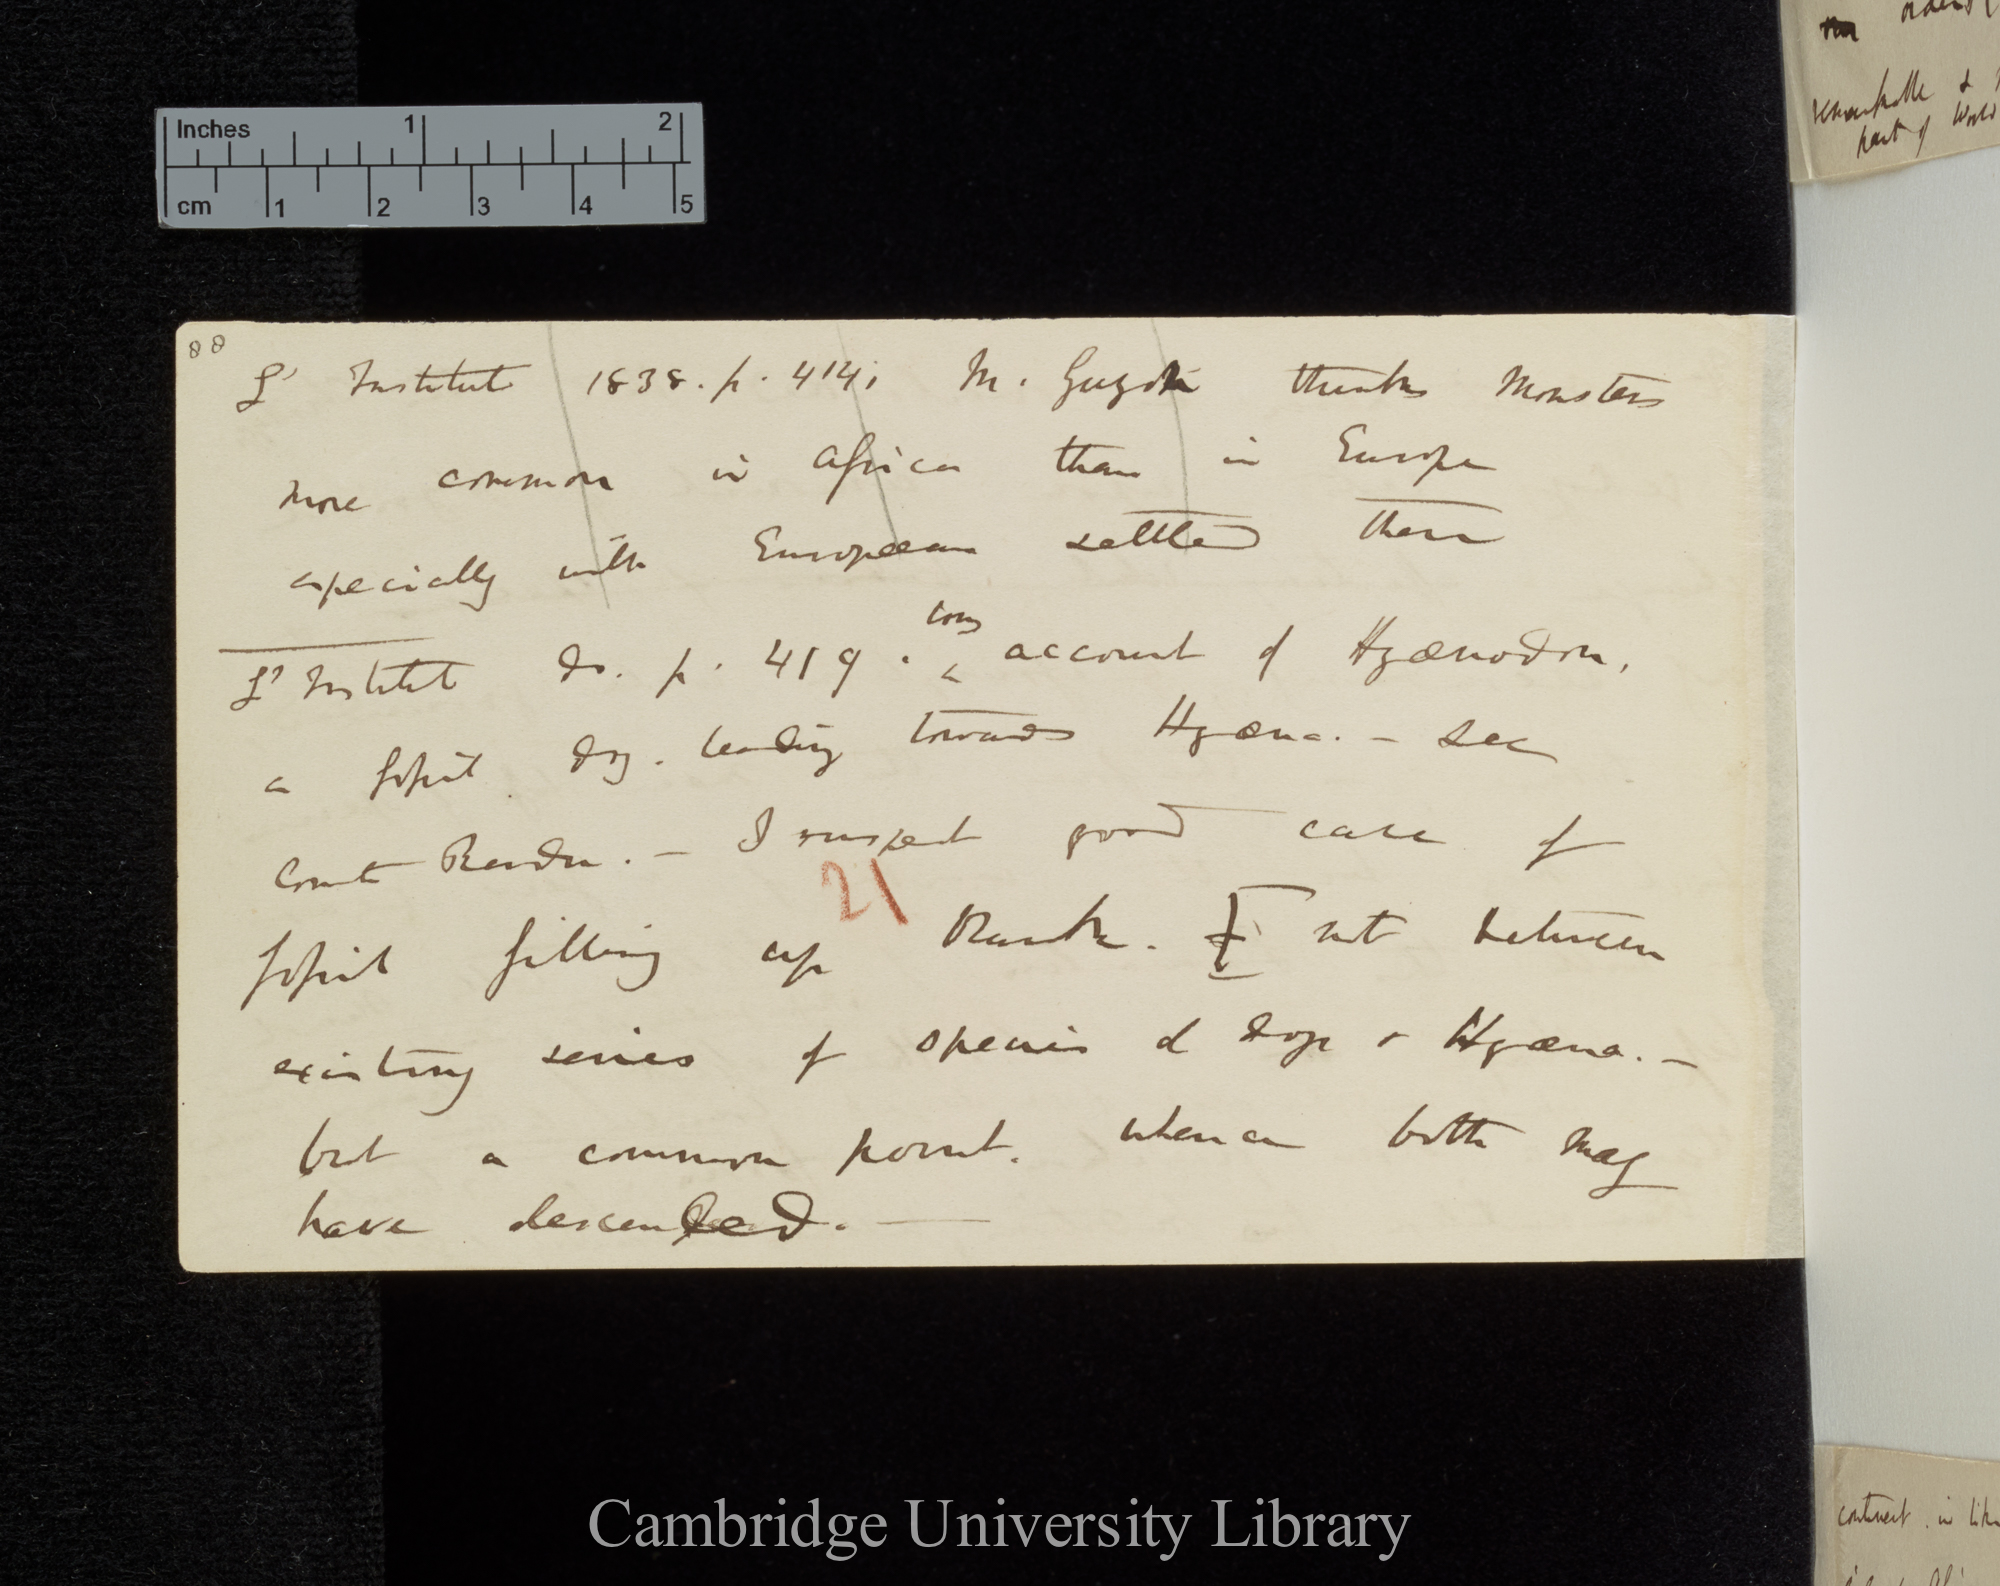 Inches 1 2
cm 1 2 3 4 5
88
L' Institut 1838. p. 414; M. Guyon thinks Monsters
more common in Africa than in Europe
especially with European settled there
L' Institut do. p. 419. long account of Hyænodon,
a fossil dog. leading towards Hyæna. – see
Comte Rendu. – I suspect good case of
21
fossil filling up blank. not between
existing series of species of dogs & Hyæna. –
but a common point. whence both may
have descended. —
remarkable &
part of World
continent. in
Cambridge University Library